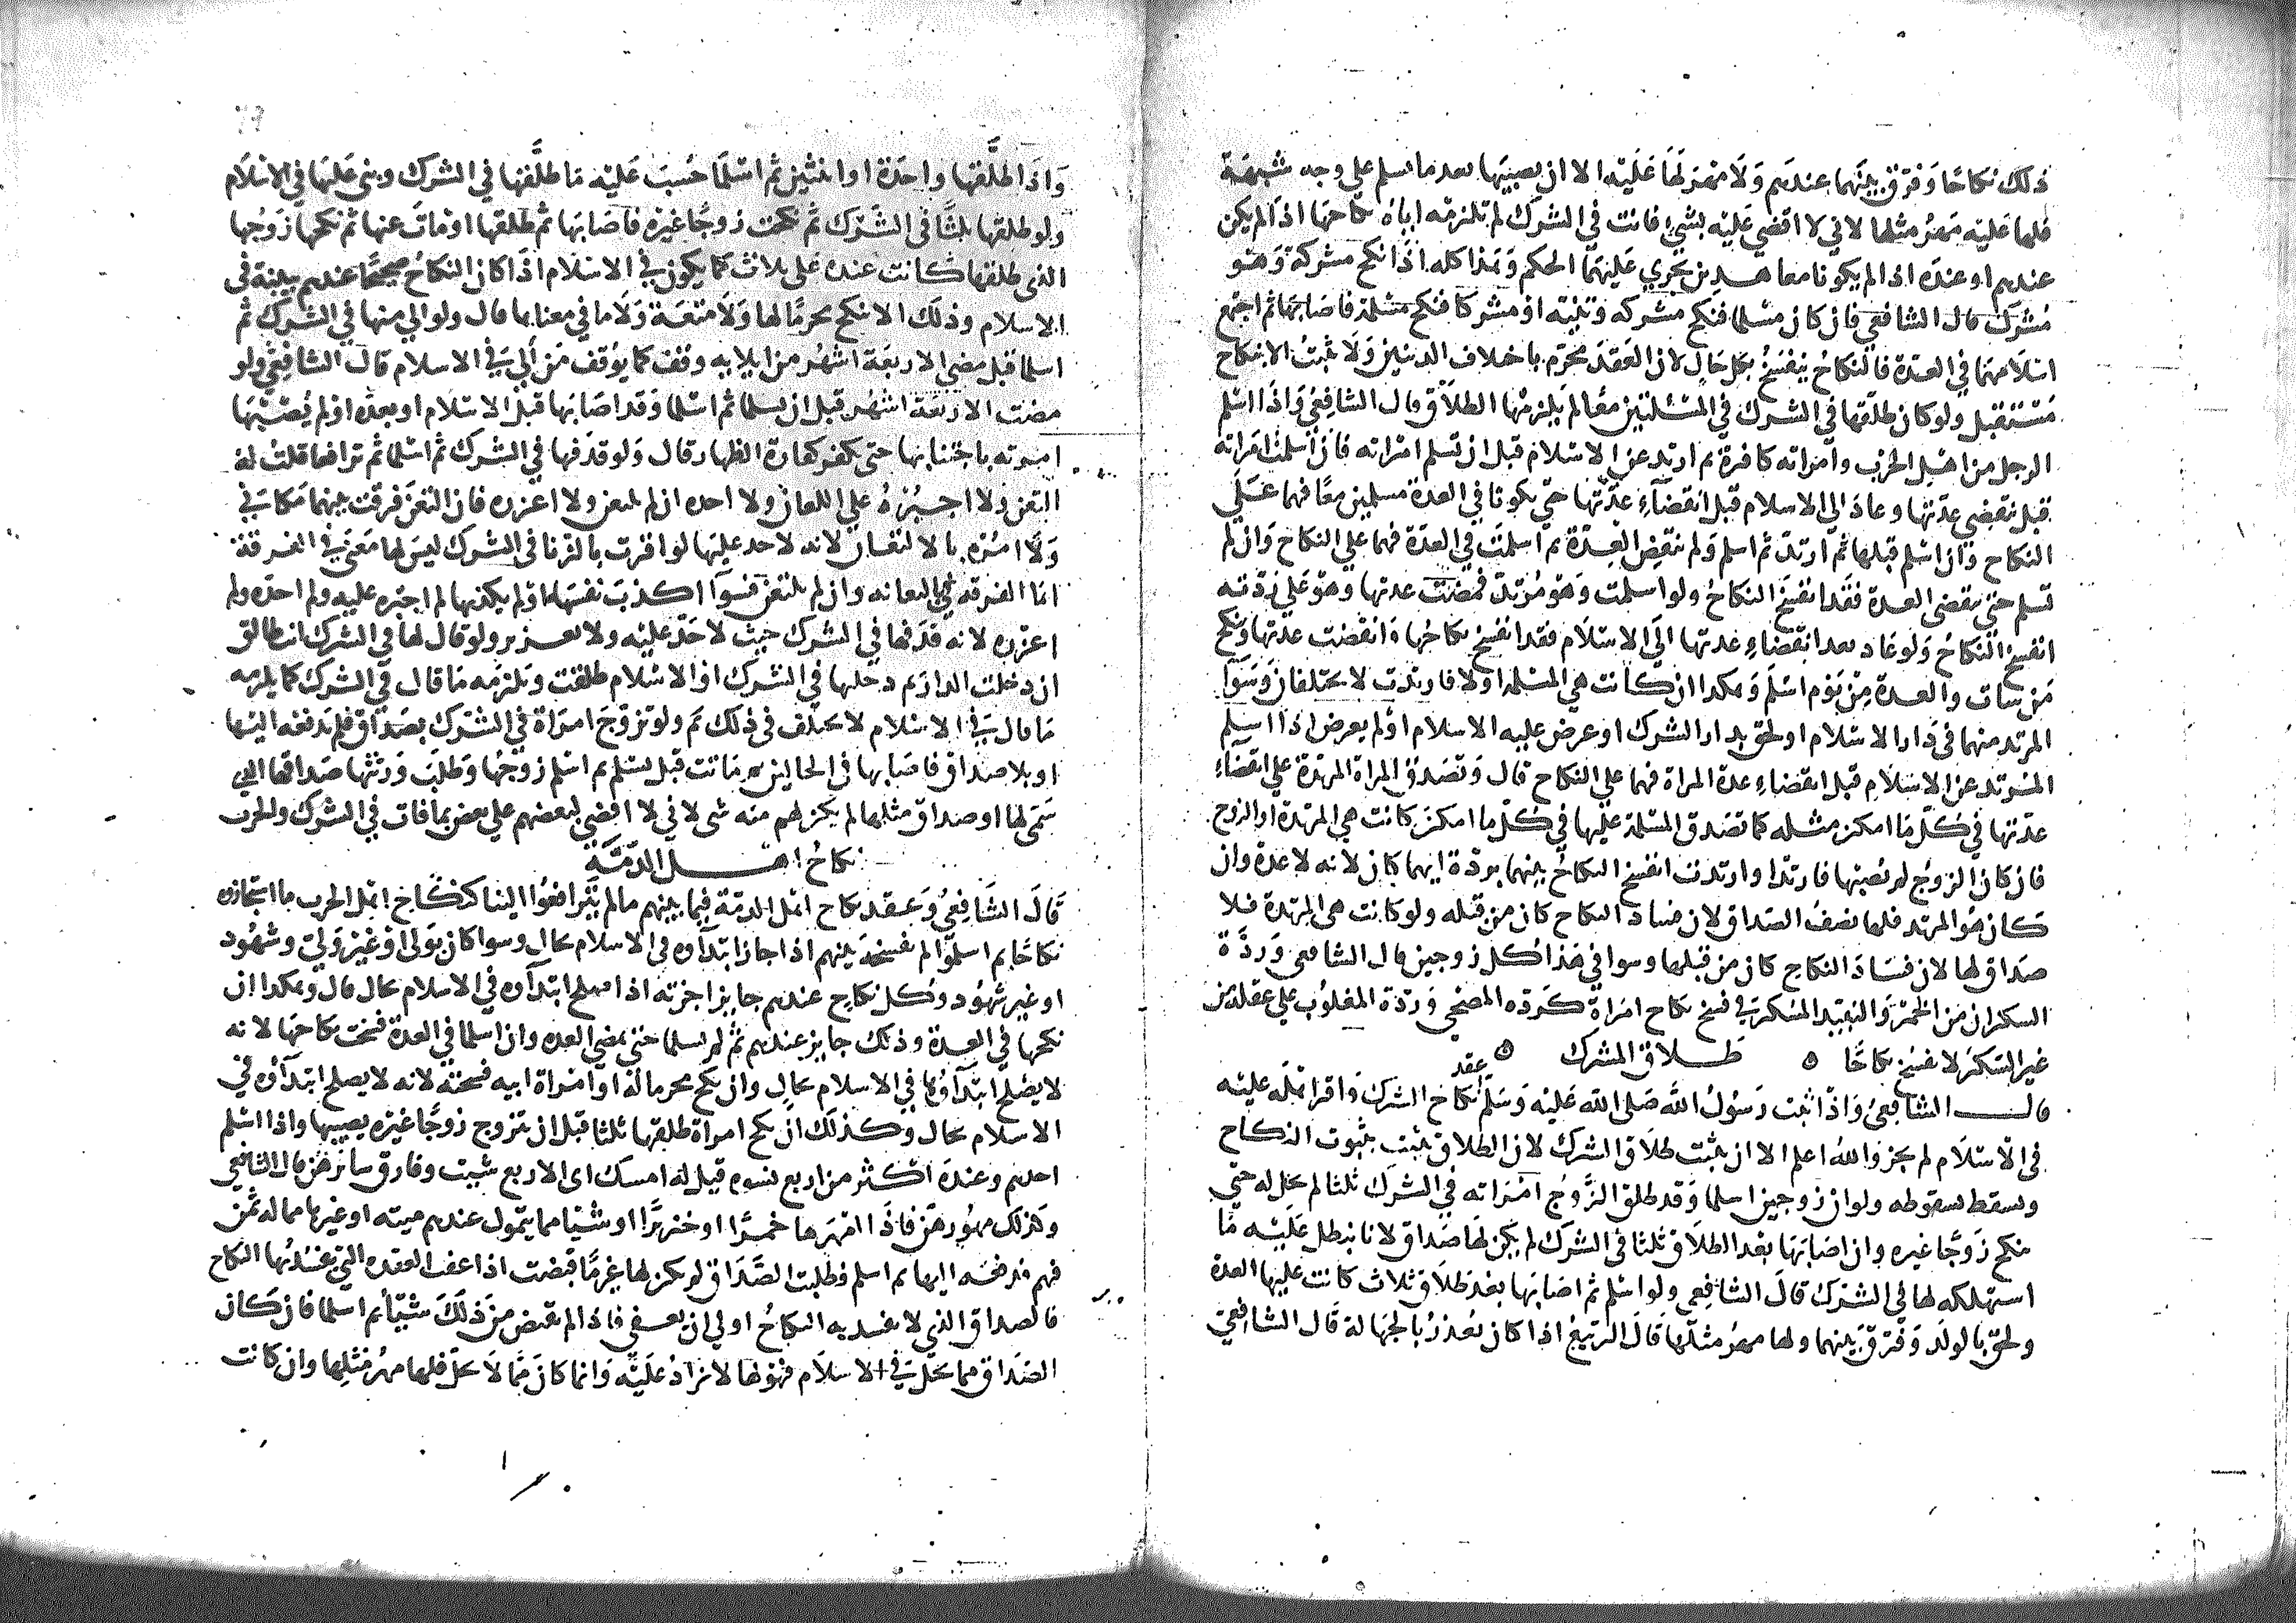 ذلك نكاحا وفرق بينهما عندهم ولا مهر لها عليه الا ان يصيبها بعد ما اسلم علي وجه شبهة
فلها عليه مهر مثلها لاني لا اقضي عليه بشيء فائت في الشرك لم تلزمه اياه نكاحها اذا لم يكن
عندهم او عنده اذا لم يكونا معاهدين يجري عليهما الحكم وهذا كله اذا نكح مشركة وهو
مشرك قال الشافعي فان كان مسلما فنكح مشركه وثنيه او مشركا فنكح مسلمة فاصابها ثم اجتمع
اسلامهما في العدة فالنكاح ينفسخ بكل حال لان العقد محرم باختلاف الدينين ولا يثبت الا بنكاح
مستقبل ولو كان طلقها في الشرك في المسئلتين معا لم يلزمها الطلاق قال الشافعي واذا اسلم
الرجل من اهل الحرب وامراته كافرة ثم ارتد عن الاسلام قبل ان تسلم امراته فان اسلمت امراته
قبل تنقضي عدتها وعاد الي الاسلام قبل انقضاء عدتها حتي يكونا في العدة مسلمين معا فهما علي
النكاح وان اسلم قبلها ثم ارتد ثم اسلم ولم تنقض العدة ثم اسلمت في العدة فهما علي النكاح وان لم
تسلم حتي تنقضي العدة فقد انفسخ النكاح ولو اسلمت وهو مرتد فمضت عدتها وهو علي ردته
انفسخ النكاح ولو عاد بعد انقضاء عدتها الي الاسلام فقد انفسخ نكاحها وانقضت عدتها وتنكح
من شات والعدة من يوم اسلم وهكذا ان كانت هي المسلمة اولا فارتدت لا يختلفان وسوآ
المرتد منهما في دار الاسلام او لحق بدار الشرك او عرض عليه الاسلام او لم يعرض اذا اسلم
المرتد عن الاسلام قبل انقضاء عدة المراة فهما علي النكاح قال وتصدق المراة المرتدة علي انقضاء
عدتها في كل ما امكن مثله كما تصدق المسلمة عليها في كل ما امكن كانت هي المرتدة او الزوج
فان كان الزوج لم يصبها فارتد او ارتدت انفسخ النكاح بينهما بردة ايهما كان لانه لا عدة وان
كان هو المرتد فلها نصف الصداق لان فساد النكاح كان من قبله ولو كانت هي المرتدة فلا
صداق لها لان فساد النكاح كان من قبلها وسوا في هذا كل زوجين قال الشافعي وردة
السكران من الخمر والنبيذ المسكر في فسخ نكاح امراة كردة المصحي وردة المغلوب علي عقله من
غير السكر لا تفسخ نكاحا ٥ طلاق المشرك ٥
عقد
قال الشافعي واذ اثبت رسول الله صلى الله عليه وسلم نكاح الشرك واقر اهله عليه
في الاسلام لم يجز والله اعلم الا ان يثبت طلاق الشرك لان الطلاق يثبت بثبوت النكاح
ويسقط بسقوطه ولو ان زوجين اسلما وقد طلق الزوج امراته في الشرك ثلثا لم تحل له حتي
تنكح زوجا غيره وان اصابها بعد الطلاق ثلثا في الشرك لم يكن لها صداق لانا نبطل عليه ما
استهلكه لها في الشرك قال الشافعي ولو اسلم ثم اصابها بعد طلاق ثلاث كانت عليها العدة
ولحق بالولد وفرق بينهما ولها مهر مثلها قال الربيع اذا كان يعذر بالجهالة قال الشافعي
واذا طلقها واحدة او اثنتين ثم اسلما حسب عليه ما طلقها في الشرك وبنى عليها في الاسلام
ولو طلقها ثلثا في الشرك ثم نكحت زوجا غيره فاصابها ثم طلقها او مات عنها ثم نكحها زوجها
الذي طلقها كانت عنده على ثلاث كما يكون في الاسلام اذا كان النكاح صحيحا عندهم نثبته في
الاسلام وذلك الا تنكح محرما لها ولا متعة ولا ما في معناها قال ولو الي منها في الشرك ثم
اسلما قبل مضي الاربعة اشهر من ايلايه وقف كما يوقف من آلي في الاسلام قال الشافعي ولو
مضت الاربعة اشهر قبل ان يسلما ثم اسلما وقد اصابها قبل الاسلام او بعده او لم يصبها
امرته باجتنابها حتى يكفر كفارة الظهار قال ولو قذفها في الشرك ثم اسلما ثم ترافعا قلت له
التعن ولا اجبره علي اللعان ولا احده ان لم يلتعن ولا اعزره فان التعن فرقت بينهما مكاني
ولا امرها بالالتعان لانه لا حد عليها لو اقرت بالزنا في الشرك ليس لها معني في الفرقة
انما الفرقه في التعانه وان لم يلتعن فسوآ اكذب نفسه او لم يكذبها لم اجبره عليه ولم احده ولم
اعزره لانه قذفها في الشرك حيث لا حد عليه ولا تعزير ولو قال لها في الشرك انت طالق
ان دخلت الدار ثم دخلتها في الشرك او الاسلام طلقت ويلزمه ما قال في الشرك كما يلزمه
ما قال في الاسلام لا يختلف في ذلك ثم ولو تزوج امراة في الشرك بصداق فلم يدفعه اليها
او بلا صداق فاصابها في الحالين ثم ماتت قبل يسلم ثم اسلم زوجها وطلب ورثتها صداقها الذي
سمى لها او صداق مثلها لم يكن لهم منه شى لاني لا اقضي لبعضهم علي بعض بما فات في الشرك والحرب
نكاح اهل الذمة
قال الشافعي وعقد نكاح اهل الذمة فيما بينهم ما لم يترافعوا الينا كنكاح اهل الحرب ما استجازوه
نكاحا ثم اسلموا لم نفسخه بينهم اذا جاز ابتدآوه في الاسلام بحال وسوا كان بولي او غير ولي وشهود
او غير شهود وكل نكاح عندهم جايز اجزته اذا صلح ابتدآوه في الاسلام بحال قال وهكذا ان
نكحها في العدة وذلك جايز عندهم ثم لم يسلما حتى تمضي العده وان اسلما في العدة فسخت نكاحها لانه
لا يصلح ابتدآؤها في الاسلام بحال وان نكح محرما له او امراة ابيه فسخته لانه لا يصلح ابتدآؤه في
الاسلام بحال وكذلك ان نكح امراة طلقها ثلثا قبل ان تتزوج زوجا غيره يصيبها واذا اسلم
احدهم وعنده اكثر من اربع نسوة قيل له امسك اى الاربع شيت وفارق سائرهن قال الشافعي
وكذلك مهورهن فاذا امهرها خمرا او خنزيرا او شيا مما يتمول عندهم ميته او غيرها مما له ثمن
فيهم فدفعه اليها ثم اسلم فطلبت الصداق لم يكن لها غير ما قبضت اذا عفت العقده التي يفسد بها النكاح
فالصداق الذي لا يفسد به النكاح اولي ان يعفى فاذا لم تقبض من ذلك شيئا ثم اسلما فان كان
الصداق مما يحل في الاسلام فهو لها لا تزاد عليه وانما كان مما لا يحل فلها مهر مثلها وان كانت